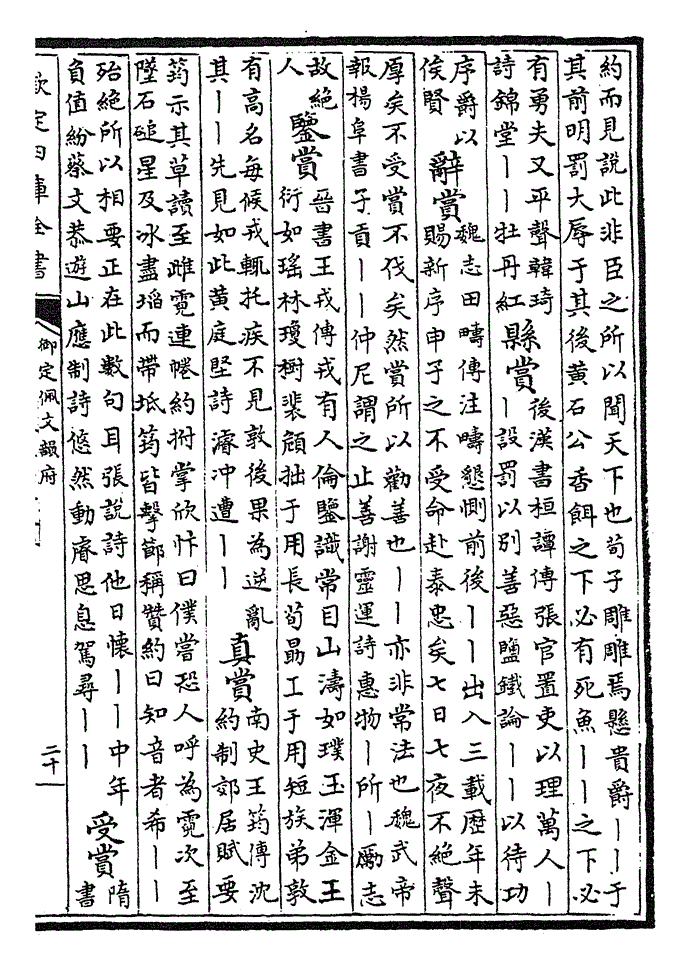 約而見說此非臣之所以聞天下也荀子雕雕焉懸貴爵——于
其前明罰大辱于其後黃石公香餌之下必有死魚——之下必
有勇夫又平聲韓琦
詩錦堂——牡丹紅
縣賞
後漢書桓譚傳張官置吏以理萬人—
—設罰以別善惡鹽鐵論——以待功
序爵以
俟賢
辭賞
魏志田疇傳注疇懇惻前後——出入三載歷年未
賜新序申子之不受命赴秦忠矣七日七夜不絕聲
厚矣不受賞不伐矣然賞所以勸善也——亦非常法也魏武帝
報楊阜書子貢——仲尼謂之止善謝靈運詩惠物—所—勵志
故絕
人
鑒賞
晉書王戎傳戎有人倫鑒識常目山濤如璞玉渾金王
衍如瑤林瓊樹裴頠拙于用長荀勗工于用短族弟敦
有高名每候戎輒托疾不見敦後果為逆亂
其——先見如此黃庭堅詩濬沖遭——
真賞
南史王筠傳沈
約制郊居賦要
筠示其草讀至雌霓連蜷約拊掌欣忭曰僕嘗恐人呼為霓次至
墜石磓星及冰盡堛而帶坻筠皆擊節稱贊約曰知音者希——
殆絕所以相要正在此數句耳張說詩他日懷——中年
負值紛蔡文恭遊山應制詩悠然動睿思息駕尋——
受賞
隋
書
欽定四庫全書
御定佩文韻府
二十一